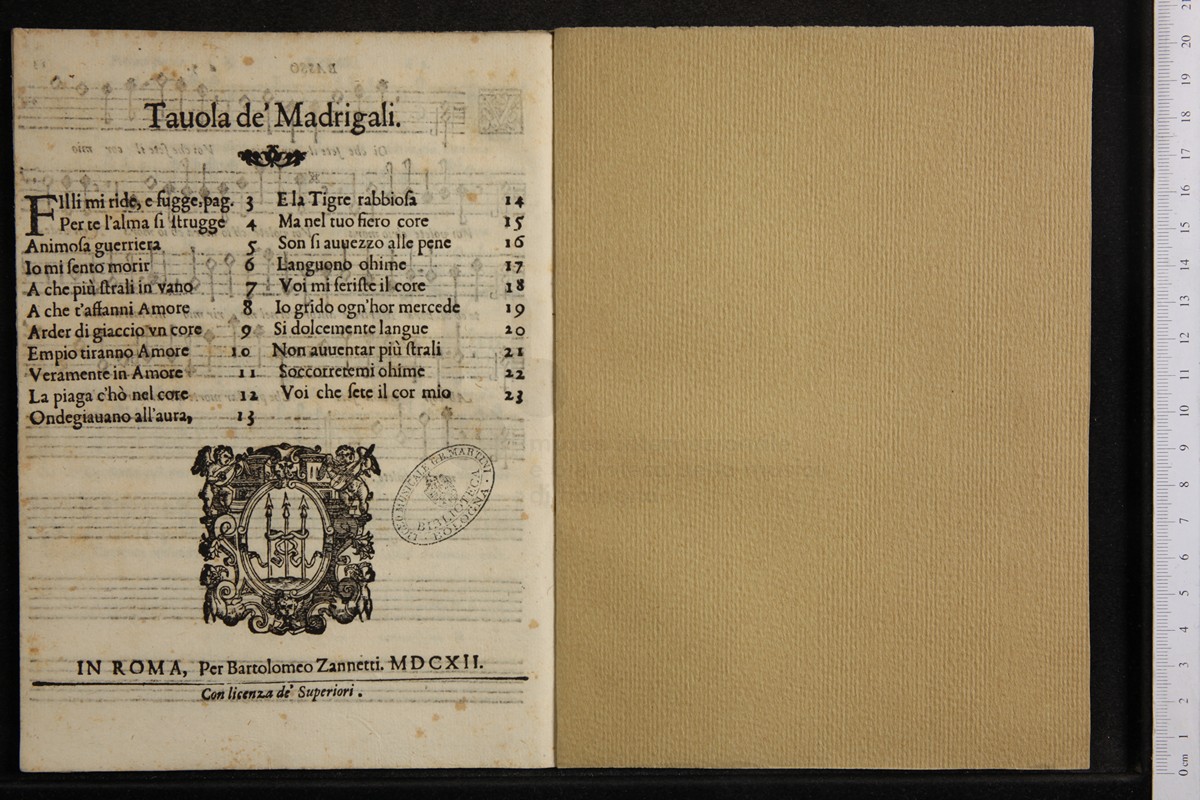 Tauola de' Madrigali.
FIlli mi ride, e fugge, pag. 3
Per te l'alma si strugge 4
Animosa guerriera 5
Io mi sento morir 6
A che più strali in vano 7
A che t'affanni Amore 8
Arder di giaccio vn core 9
Empio tiranno Amore 10
Veramente in Amore 11
La piaga c'hò nel core 12
Ondegiauano all'aura, 13
E la Tigre rabbiosa 14
Ma nel tuo fiero core 15
Son si auuezzo alle pene 16
Languono ohime 17
Voi mi feriste il core 18
Io grido ogn'hor mercede 19
Si dolcemente langue 20
Non auuentar più strali 21
Soccorretemi ohime 22
Voi che sete il cor mio 23
LICEO MUSICALE G.B. MARTINI
BIBLIOTECA
BOLOGNA
IN ROMA, Per Bartolomeo Zannetti. MDCXII.
Con licenza de' Superiori.
0 cm 1 2 3 4 5 6 7 8 9 10 11 12 13 14 15 16 17 18 19 20 21